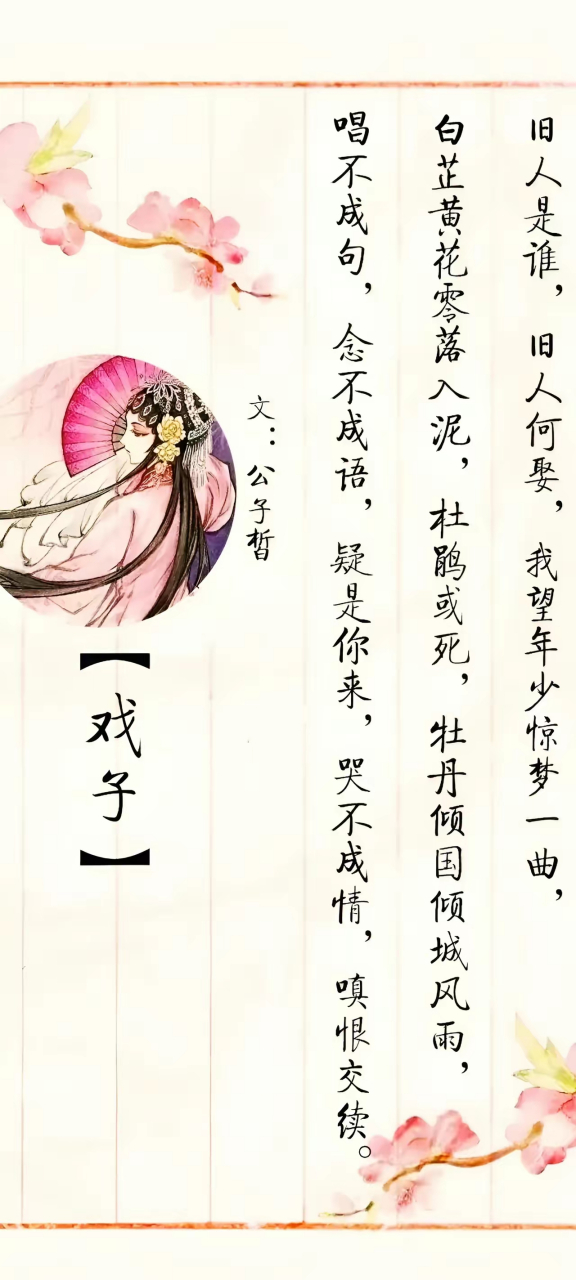 旧人是谁，旧人何娶，我望年少惊梦一曲，
白芷黄花零落入泥，杜鹃或死，牡丹倾国倾城风雨，
唱不成句，念不成语，疑是你来，哭不成情，嗔恨交续。
文：公子皙
【戏子】